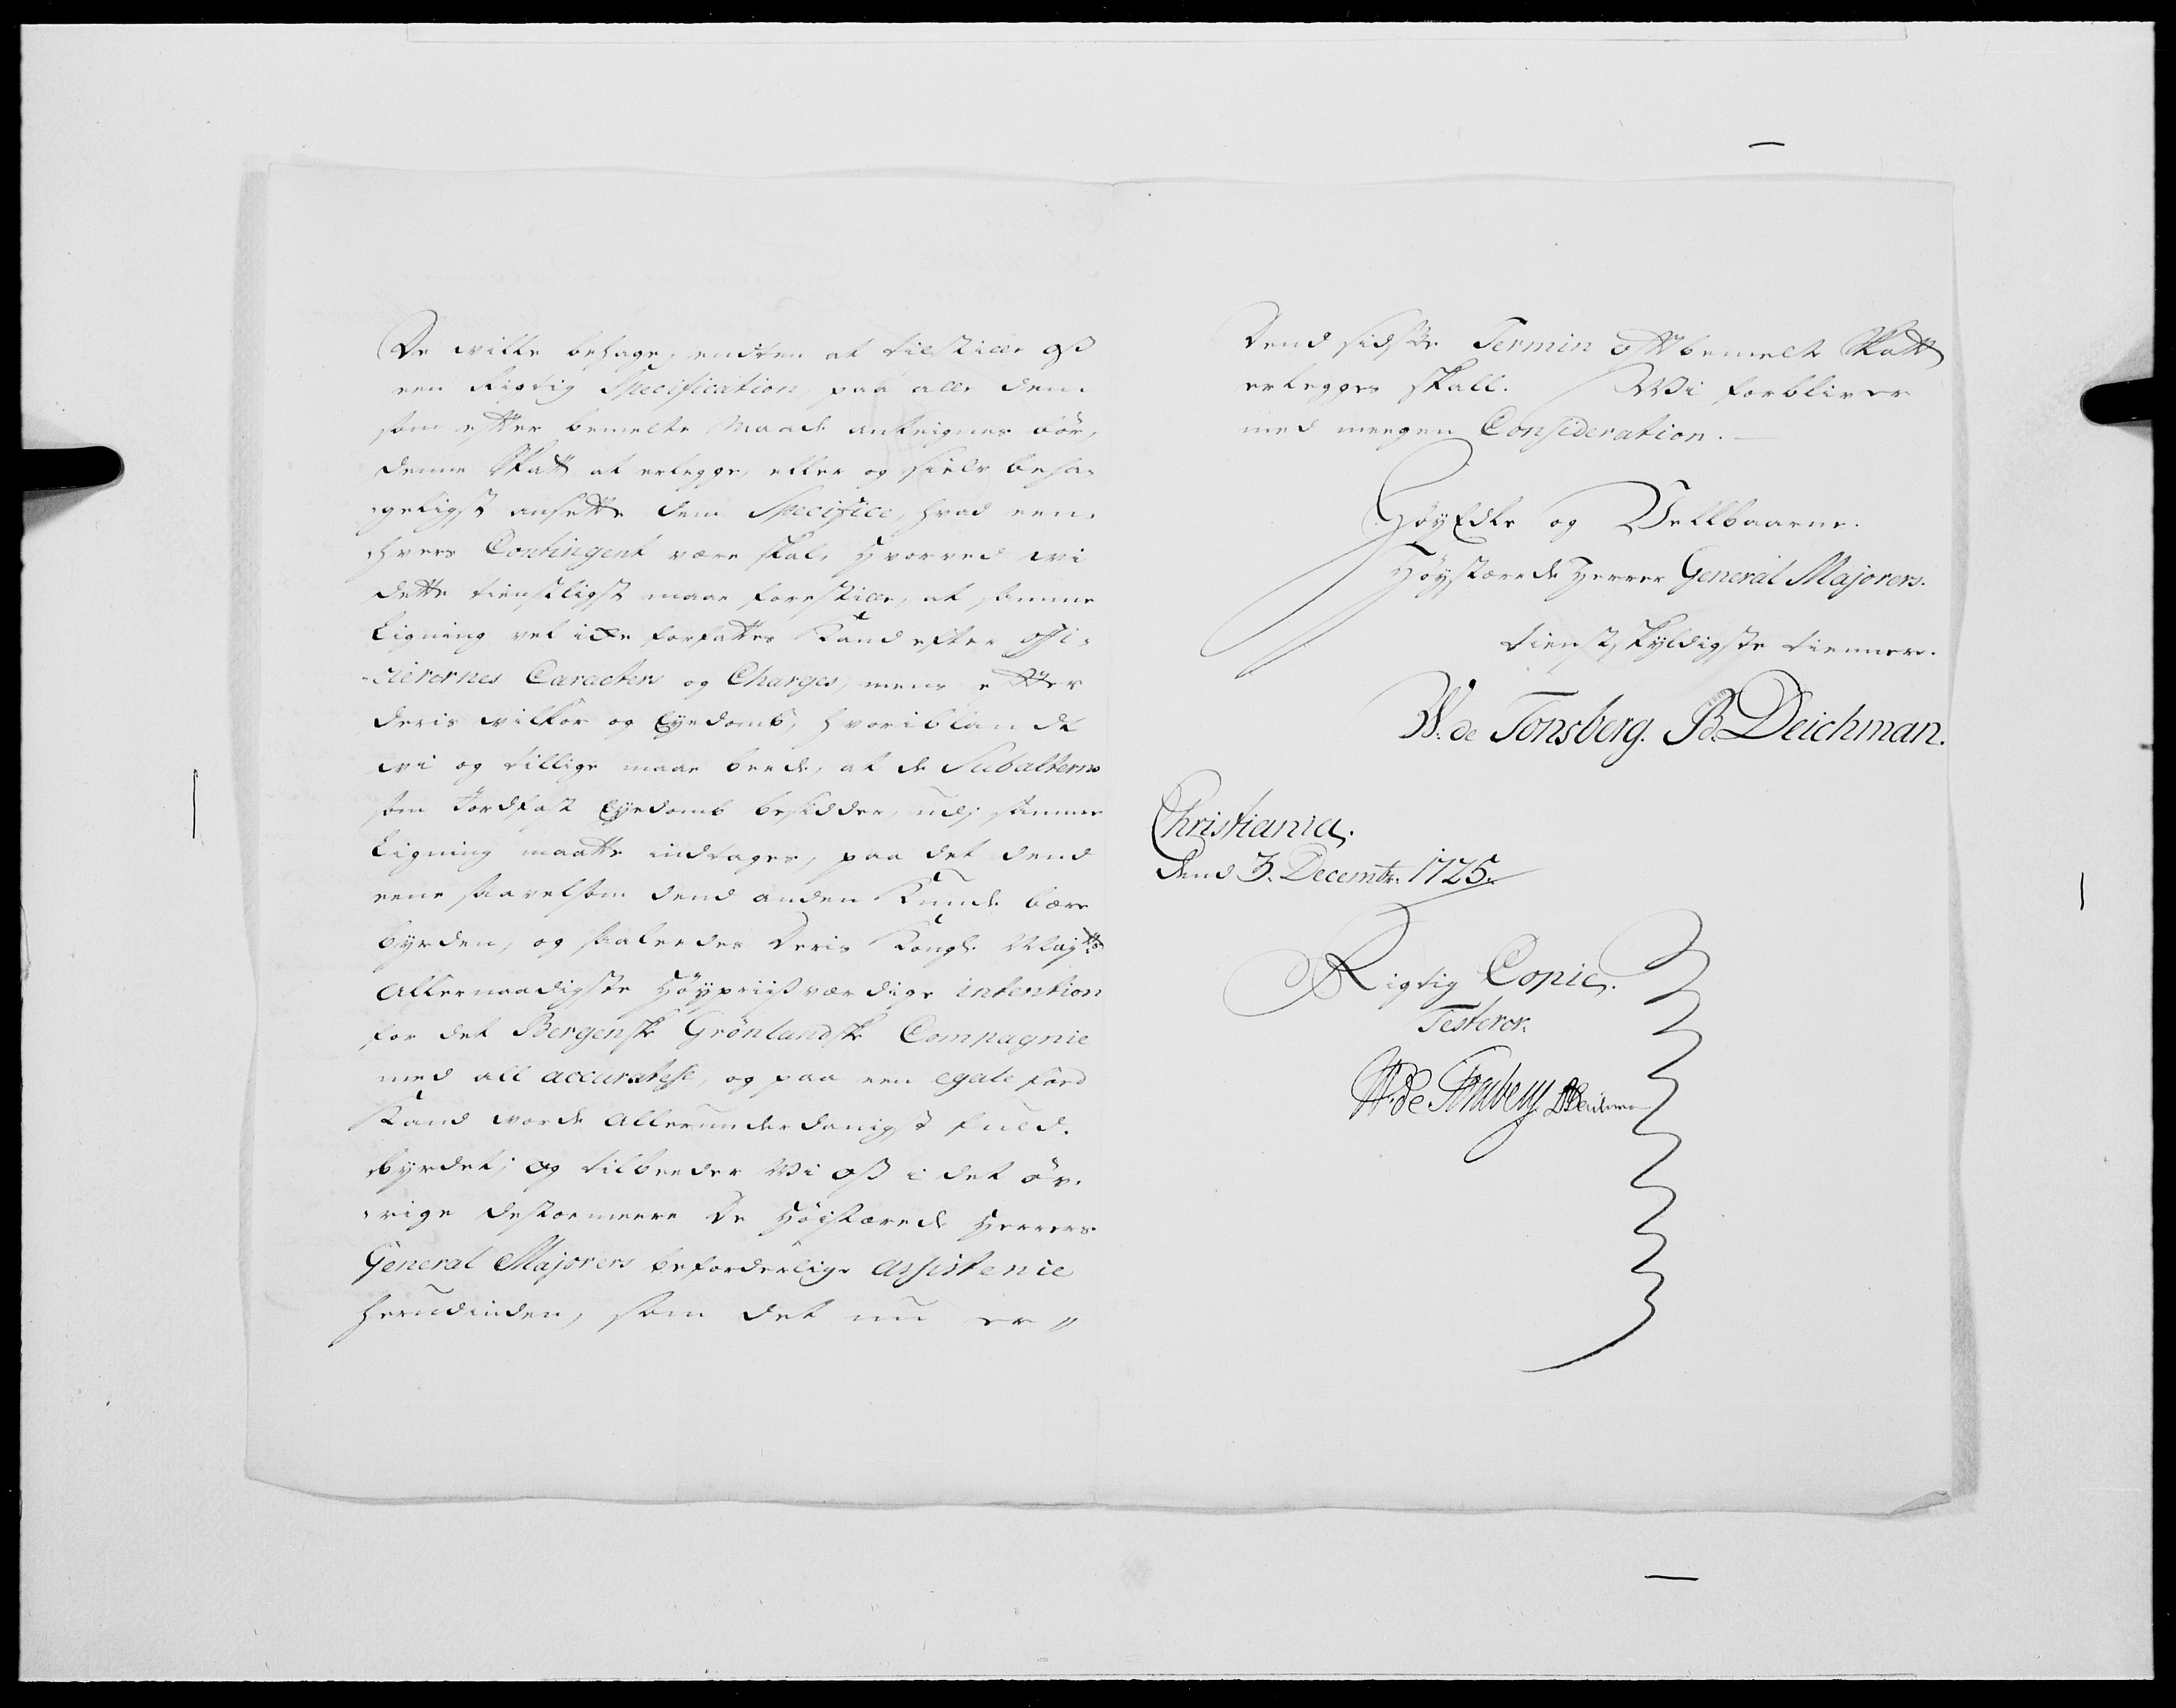 De wille behage, endten at tilstille oß
een Rigtig Specification, paa alle dem
som efter bemelte Maade anteignes bör,
denne Skatt at erlegge, eller og sielv beha-
geligst ansette dem Specifice, hvad een-
hvers Contingent være skal, Hvorved wi
dette tienstligst maae forestille, at samme
Ligning vel icke forfattes Kand efter offi-
-cierernes Caracters og Charges, mens efter
deris wilkor og Eyedomb, hvoriblandt
wi og tillige maae beede, at de Subalterns
som Jordfast Eyedomb besidder, udj samme
Ligning maatte indtages, paa det dend
eene saavelsom dend anden Kunde bære
byrden, og saaledes Deris Kongl: Majtts
Allernaadigste Höypriisværdige intention
for det Bergenske Grönlandske Compagnie
med all accuratesse, og paa een egale foed
Kand worde Allerunderdanigst fuld-
byrdet; og tilbeeder Wi oß i det öv-
rige destoemeere De Höistærede Herrers
General Majorers beforderlige assistence
herudinden, som det nu er
Dend sidste Termin oftbemelte Skatt
erlegges skall. Wi forbliver
med meegen Consideration.
HöyEdle og Vellbaarne.
Höystærede Herrer General Majorers.
tienstskyldigste tiennere.
W. de Tonsberg. B. Deichman.
Christiania.
dend 3. Decembr: 1725.
Rigtig Copie.
Testerer.
W. de Tonsberg BDeichman